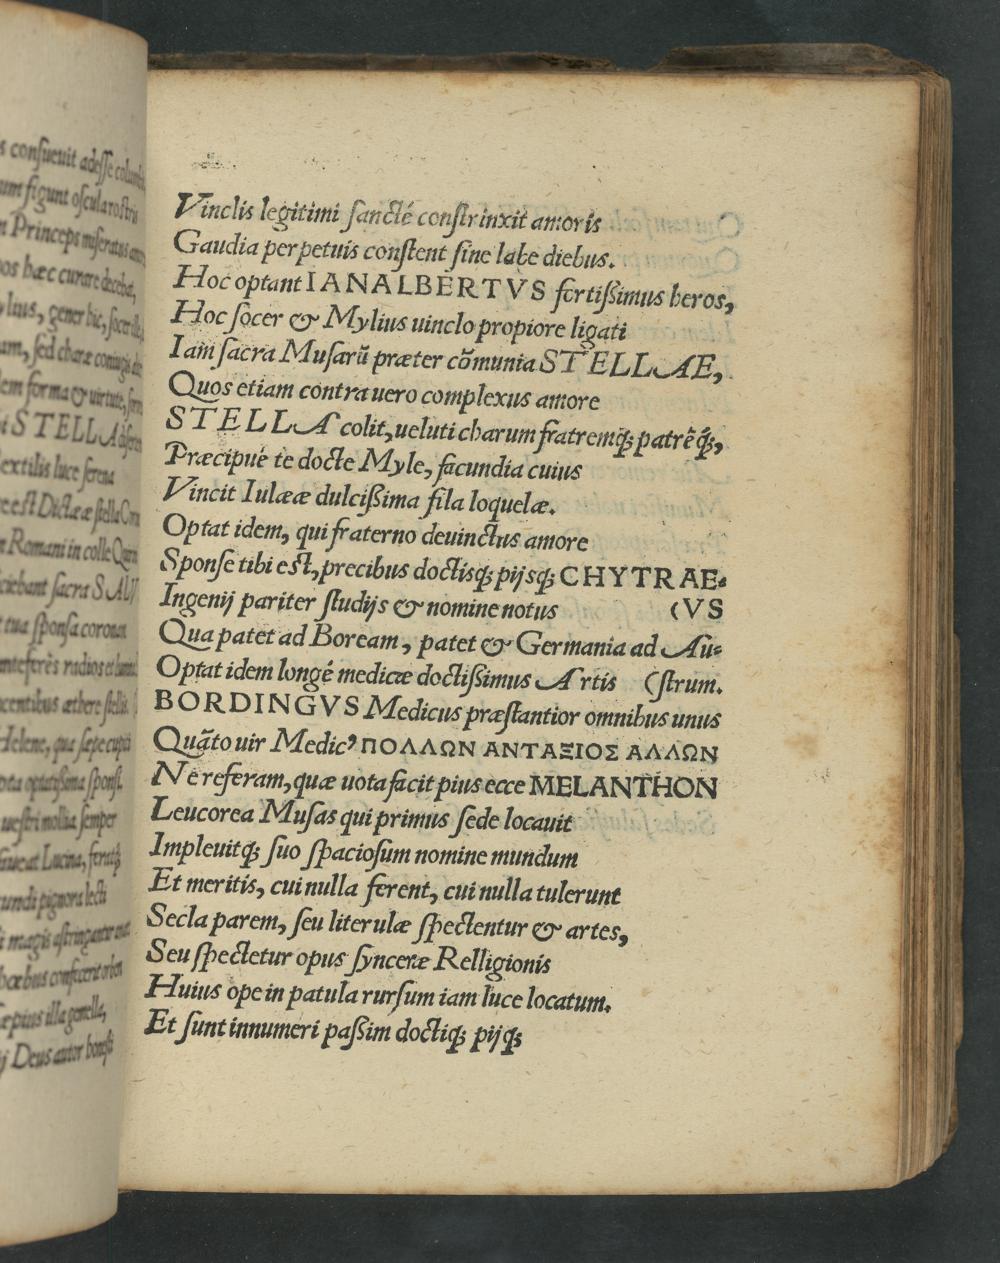 s consueuit adesse
um figunt oscula rostris
n Princeps miseratus
os hæc curare decebat,
lius, gener hic, socer
am, sed charæ coniugis
em forma & uirtute,
i STELLA
extilis luce serena
e est Dictææ stella
n Romani in colle
ciebant sacra
tua sponsa coronat
nteferês radios et
centibus æthere stellis.
Helene, quæ sæpe
ota optatissima sponsi.
uestri mollia semper
faueat Lucina,
cundi pignora lecti
magis astringantur
hœbus confecerit orbem
sæpius illa gemella,
ij Deus autor honesti
Vinclis legitimi sancté constrinxit amoris
Gaudia perpetuis constent sine labe diebus.
Hoc optant IANALBERTVS fortißimus heros,
Hoc socer & Mylius uinclo propiore ligati
Iam sacra Musarũ præter cõmunia STELLAE,
Quos etiam contra uero complexus amore
STELLA colit, ueluti charum fratremq́; patrẽq́;,
Præcipué te docte Myle, facundia cuius
Vincit Iulææ dulcißima fila loquelæ.
Optat idem, qui fraterno deuinctus amore
Sponse tibi est, precibus doctisq́; pijsq́; CHYTRAE⸗
Ingenij pariter studijs & nomine notus (VS
Qua patet ad Boream, patet & Germania ad Au⸗
Optat idem longé medicæ doctißimus Artis (strum.
BORDINGVS Medicus præstantior omnibus unus
Quãto uir Medicꝰ ΠΟΛΛΩΝ ΑΝΤΑΞΙΟΣ ΑΛΛΩΝ
Ne referam, quæ uota facit pius ecce MELANTHON
Leucorea Musas qui primus sede locauit
Impleuitq́; suo spaciosum nomine mundum
Et meritis, cui nulla ferent, cui nulla tulerunt
Secla parem, seu literulæ spectentur & artes,
Seu spectetur opus synceræ Relligionis
Huius ope in patula rursum iam luce locatum.
Et sunt innumeri paßim doctiq́; pijq́;